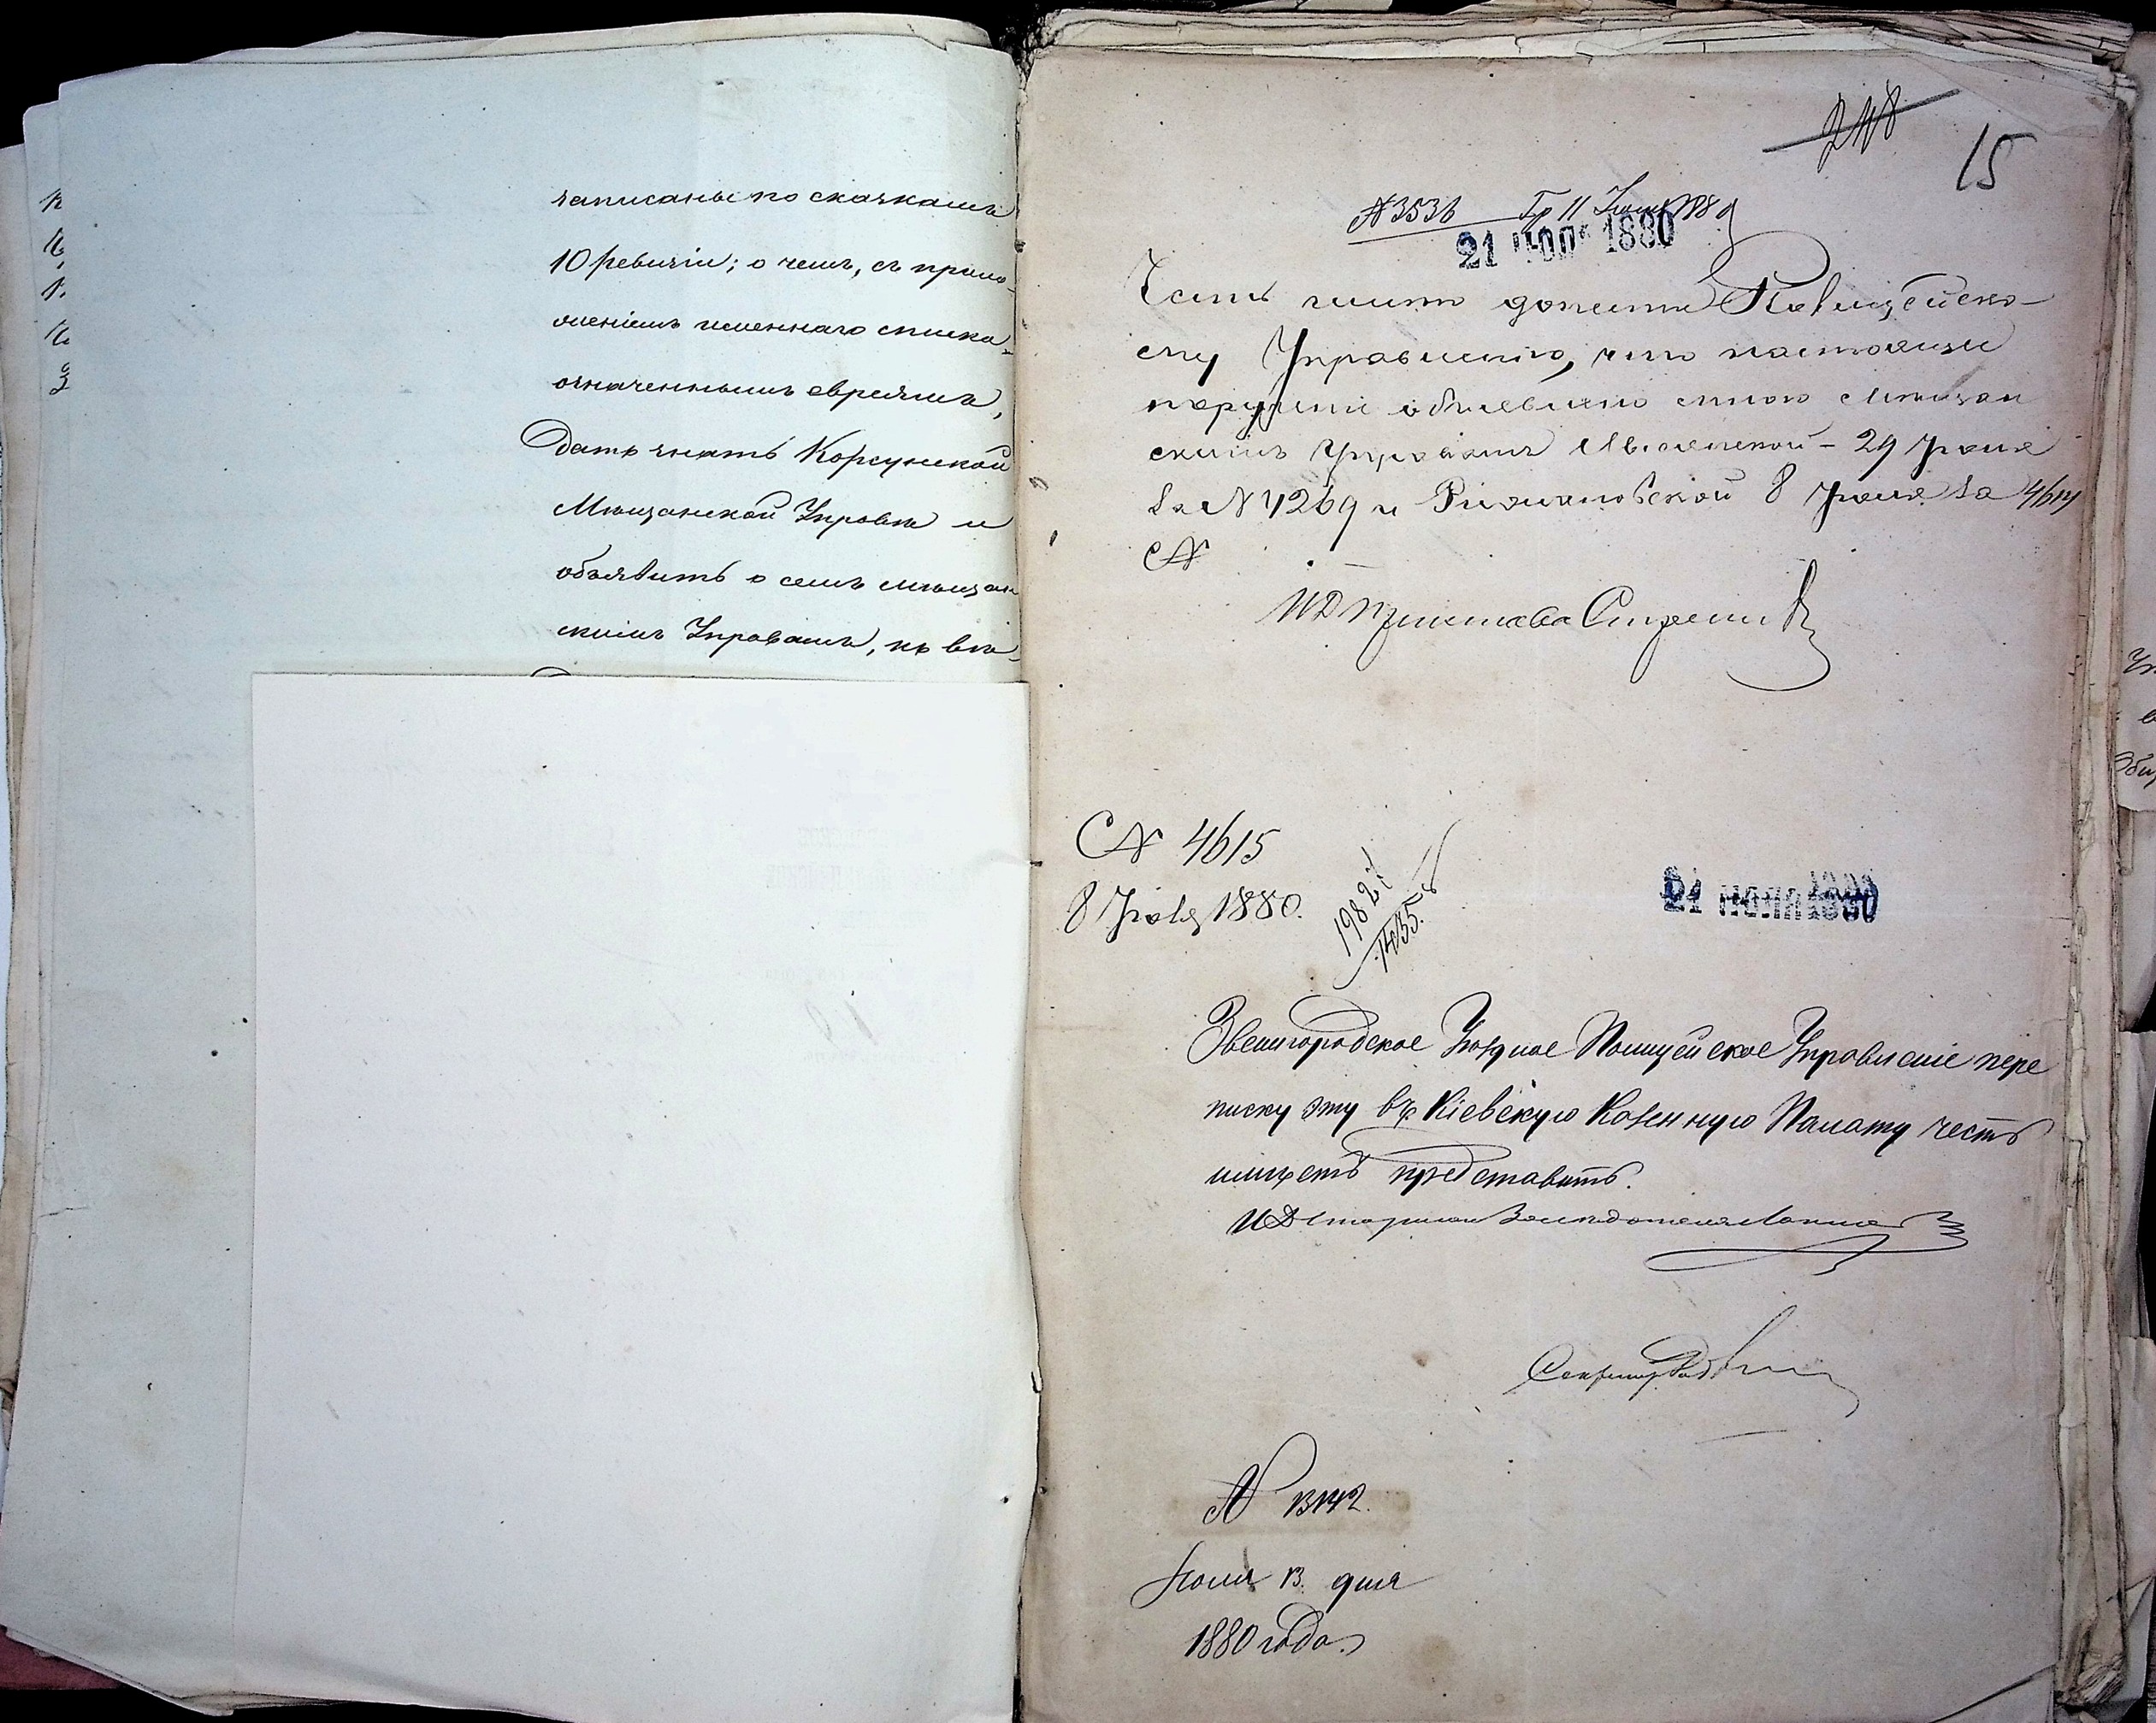 записаны по сказкамъ
10 ревизіи; о чемъ, съ прило-
женіемъ именнаго списка
означеннымъ евреямъ,
Дать знать Корсунской
Мѣщанской Управѣ и
объявить о семъ мѣщан
скимъ Управамъ, по вѣ-
248
15
№ 3536 11 Іюля 1880
21 ІЮЛЯ 1880
Честь имѣю донести Полицейско-
му Управленію, что настоящее
порученіе объявлено мною Мѣщан
скимъ Управамъ 29 Іюня
за № 4269 и 8 Іюля за 4614
№
ИД Пристава
№ 4615
8 Іюля 1880.
21 ІЮЛЯ 1880
Звенигородское Уѣздное Полицейское Управленіе пере
писку эту въ Кіевскую Казенную Палату честь
имѣетъ представить.
ИД Старшаго Засѣдателя
Секретарь
№ 13142.
Іюля 13. дня
1880 года.